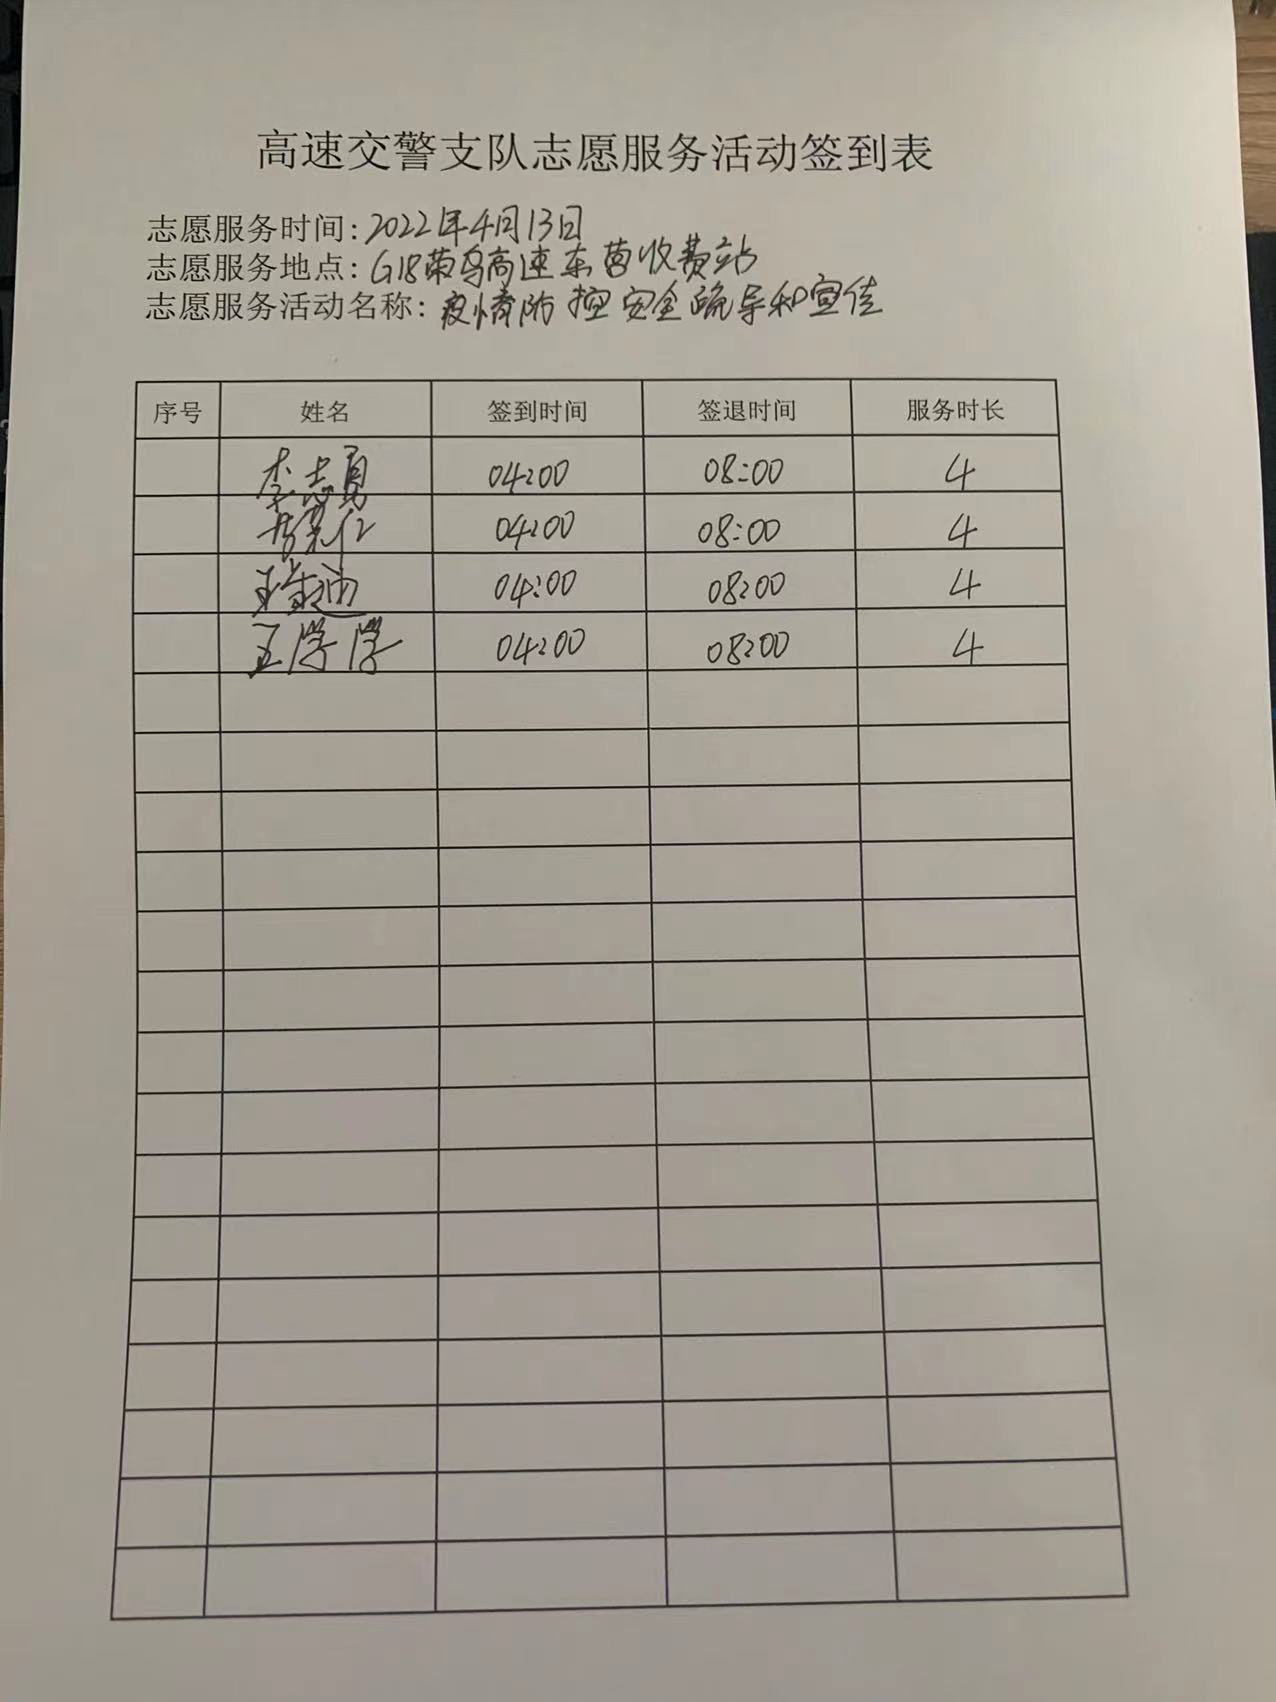 高速交警支队志愿服务活动签到表
志愿服务时间：2022年4月13日
志愿服务地点：G18荣乌高速东营收费站
志愿服务活动名称：疫情防控安全疏导和宣传
序号 姓名 签到时间 签退时间 服务时长
李志勇 04:00 08:00 4
04:00 08:00 4
04:00 08:00 4
王学学 04:00 08:00 4